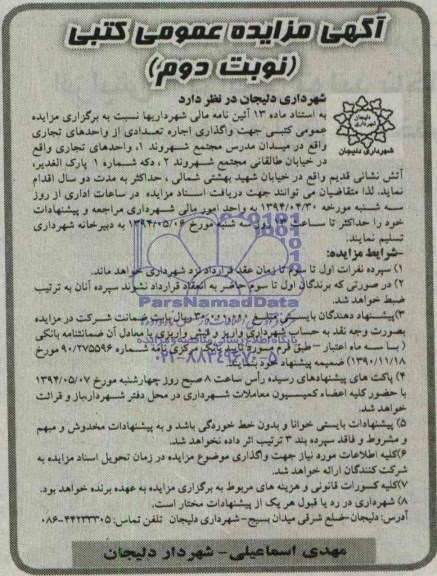 آگهی مزایده عمومی کتبی
(نوبت دوم)
شهرداری دلیجان در نظر دارد
به استناد ماده ۱۳ آئین نامه مالی شهرداریها نسبت به برگزاری مزایده
عمومی کتبی جهت واگذاری اجاره تعدادی از واحدهای تجاری
واقع در میدان مدرس مجتمع شهروند ۱، واحدهای تجاری واقع
در خیابان طالقانی مجتمع شهروند ۲، دکه شماره ۱ پارک الغدیر،
شهرداری دلیجان
آتش نشانی قدیم واقع در خیابان شهید بهشتی شمالی، حداکثر به مدت دو سال اقدام
نماید، لذا متقاضیان می توانند جهت دریافت اسناد مزایده در ساعات اداری از روز
سه شنبه مورخه ۱۳۹۴/۰۴/۳۰ به واحد امور مالی شهرداری مراجعه و پیشنهادات
خود را حداکثر تا ساعت روز سه شنبه مورخ ۱۳۹۴/۰۵/۰۶ به دبیرخانه شهرداری
تسلیم نمایند.
-شرایط مزایده:
۱) سپرده نفرات اول تا سوم تا زمان عقد قرارداد نزد شهرداری خواهد ماند.
۲) در صورتی که برندگان اول تا سوم حاضر به انعقاد قرارداد نشوند سپرده آنان به ترتیب
ضبط خواهد شد.
۳) پیشنهاد دهندگان بایستی مبلغ ریال بابت ضمانت شرکت در مزایده
بصورت وجه نقد به حساب شهرداری واریز و فیش واریزی یا معادل آن ضمانتنامه بانکی
( با سه ماه اعتبار - طبق فرم مورد تایید بانک مرکزی نامه شماره ۹۰/۲۷۵۵۹۶ مورخ
۱۳۹۰/۱۱/۱۸) ضمیمه پیشنهاد خود بنمایند.
۴) پاکت های پیشنهادهای رسیده رأس ساعت ۸ صبح روز چهارشنبه مورخ ۱۳۹۴/۰۵/۰۷
با حضور کلیه اعضاء کمیسیون معاملات شهرداری در محل دفتر شهردار،باز و قرائت
خواهد شد.
۵) پیشنهادات بایستی خوانا و بدون خط خوردگی باشد و به پیشنهادات مخدوش و مبهم
و مشروط و فاقد سپرده بند ۳ ترتیب اثر داده نخواهد شد.
۶)کلیه اطلاعات مورد نیاز جهت واگذاری موضوع مزایده در زمان تحویل اسناد مزایده به
شرکت کنندگان ارائه خواهد شد.
۷)کلیه کسورات قانونی و هزینه های مربوط به برگزاری مزایده به عهده برنده خواهد بود.
۸) شهرداری در رد یا قبول هر یک از پیشنهادات مختار است.
آدرس: دلیجان-ضلع شرقی میدان بسیج-شهرداری دلیجان تلفن تماس: ۴۴۲۳۳۳۰۵-۰۸۶
مهدی اسماعیلی- شهردار دلیجان
ParsNamadData
۰۲۱-۸۸۳۴۹۶۷۰-۵